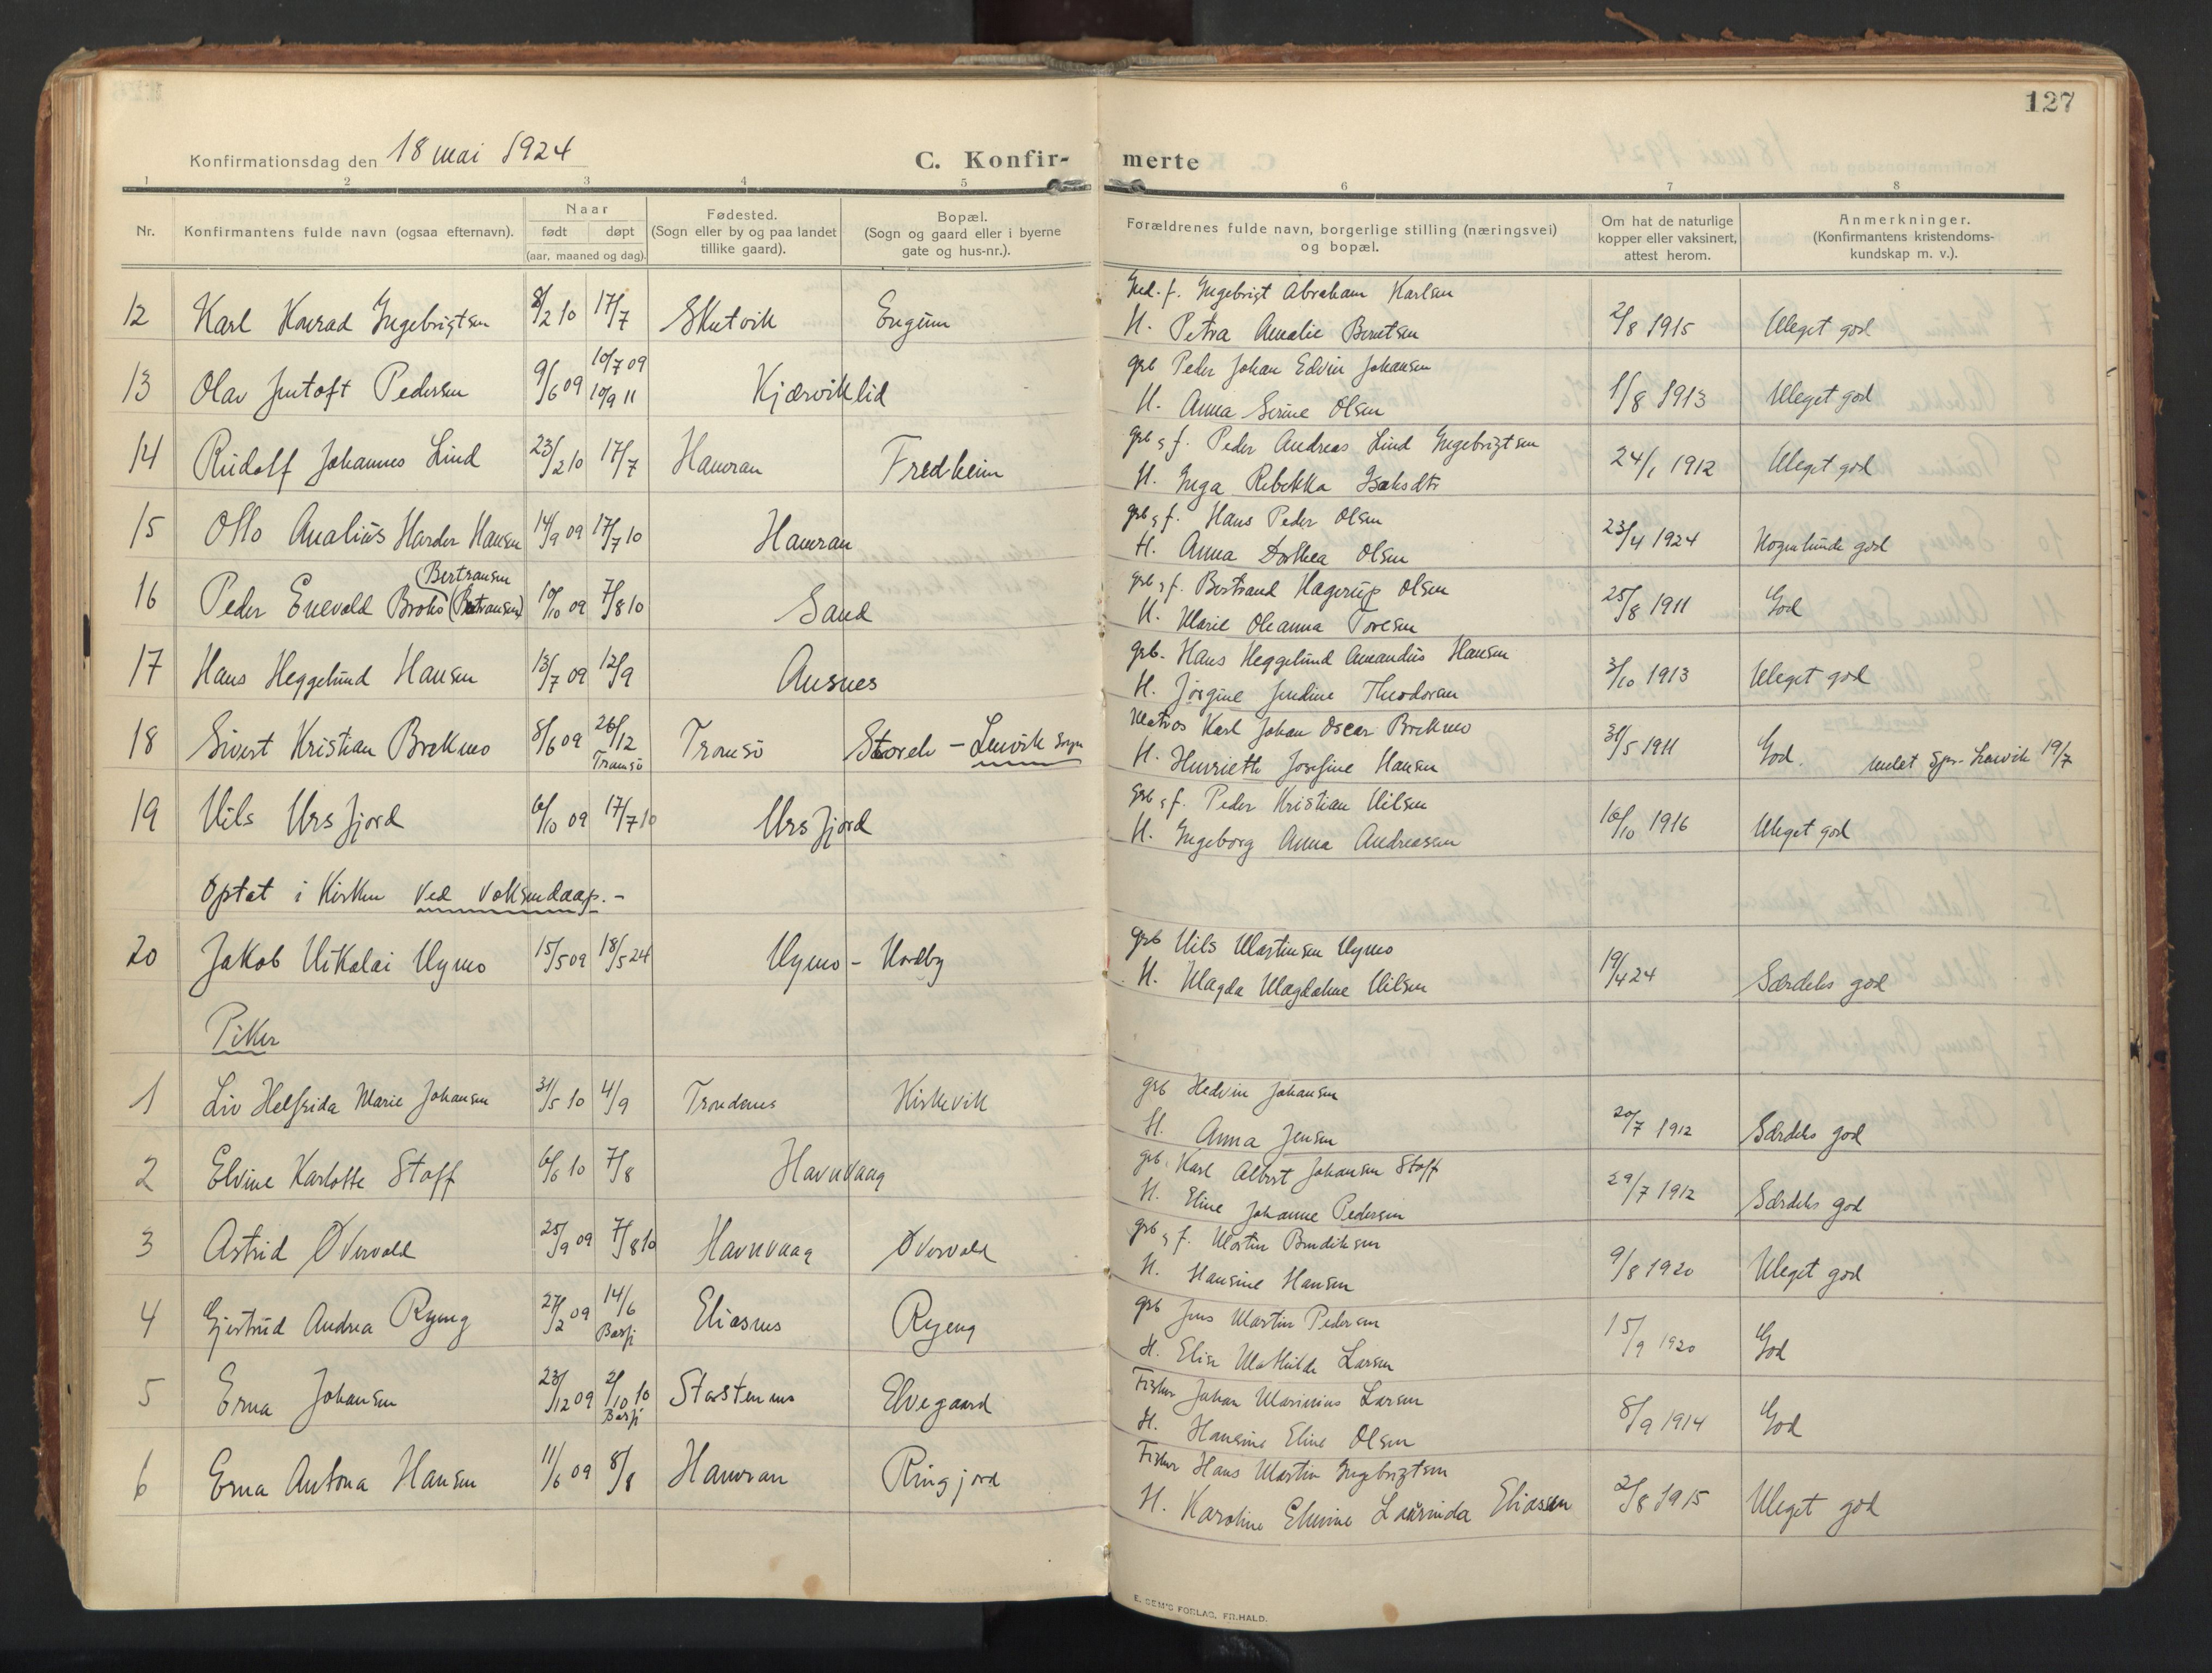 127
Konfirmationsdag den 18 mai 1924
C. Konfir- merte
1 2 3 4 5 6 7 8
Nr.
Konfirmantens fulde navn (ogsaa efternavn).
Naar
født døpt
(aar, maaned og dag).
Fødested.
(Sogn eller by og paa landet
tillike gaard).
Bopæl.
(Sogn og gaard eller i byerne
gate og hus-nr.).
Forældrenes fulde navn, borgerlige stilling (næringsvei)
og bopæl.
Om hat de naturlige
kopper eller vaksinert,
attest herom.
Anmerkninger.
(Konfirmantens kristendoms-
kundskap m. v.).
Ingebrigt Abraham Karlsen
12 Karl Konrad Ingebrigtsen 8/2 10 17/7 Skutvik Engum H. Petra Amalie Berntsen 2/8 1915 Meget god
10/7 09 grb Peder Johan Edvin Johansen
13 Olav Jentoft Pedersen 9/6 09 10/9 11 Kjærviklid H. Anna Serine Olsen 1/8 1913 Meget god
grb, f. Peder Andreas Lind Ingebrigtsen
14 Rudolf Johannes Lind 23/2 10 17/7 Hamran Fredheim H. Inga Rebekka Isaksdtr 24/1 1912 Meget god
grb, f. Hans Peder Olsen
15 Otto Analius Harder Hansen 14/9 09 17/7 10 Hamran H. Anna Dorthea Olsen 23/4 1924 Nogenlunde god
(Bertransen grb, f. Bertrand Hagerup Olsen
16 Peder Enevold Broks (Bertransen) 10/10 09 7/8 10 Sand H. Marie Oleanna Toresen 25/8 1911 God
grb. Hans Heggelund Amandus Hansen
17 Hans Heggelund Hansen 13/7 09 12/9 Ausnes H. Jørgine Jendine Theodorsen 3/10 1913 Meget god
Matros Karl Johan Oscar Brekmo
18 Sivert Kristian Brekmo 8/6 09 26/12 Tromsö Tromsö Storelv - Lenvik sogn H. Henriette Josefine Hansen 31/5 1911 God. meldt Spr. Lenvik 19/7
grb, f. Peder Kristian Nilsen
19 Nils Ursfjord 6/10 09 17/7 10 Ursfjord H. Ingeborg Anna Andreassen 16/10 1916 Meget god
Optat i Kirken ved voksendaap. -
grb Nils Martinsen Nymo
20 Jakob Nikolai Nymo 15/5 09 18/5 24 Nymo - Nordby H. Magda Magdalene Nilsen 19/4 24 Særdeles god
Piker
grb Hedvin Johansen
1 Liv Helfrida Marie Johansen 31/5 10 4/9 Trondenes Kirkevik H. Anna Jensen 20/7 1912 Særdeles god
grb. Karl Albert Johansen Stoff
2 Elvine Karlotte Stoff 6/6 10 7/8 Havnvaag H. Eline Johanne Pedersen 29/7 1912 Særdeles god
grb, f. Martin Bendiksen
3 Astrid Øvervold 25/9 09 7/8 10 Havnvaag Øvervold H. Hansine Hansen 9/8 1920 Meget god
grb Jens Martin Pedersen
4 Gjertrud Andrea Ryeng 27/2 09 14/6 Basfj Eliasnes Ryeng H. Elise Mathilde Larsen 15/9 1920 God
Fisker Johan Marinius Larsen
5 Erna Johansen 23/12 09 2/10 10 Basfj Elvegaard H. Hansine Eline Olsen 8/9 1914 God
Fisker Hans Martin Ingebrigtsen
6 Erna Antona Hansen 11/6 09 8/8 Hamran Ringjord H. Karoline Elmine Laurinda Eliassen 2/8 1915 Meget god
E. SEM'S FORLAG, FR.HALD.